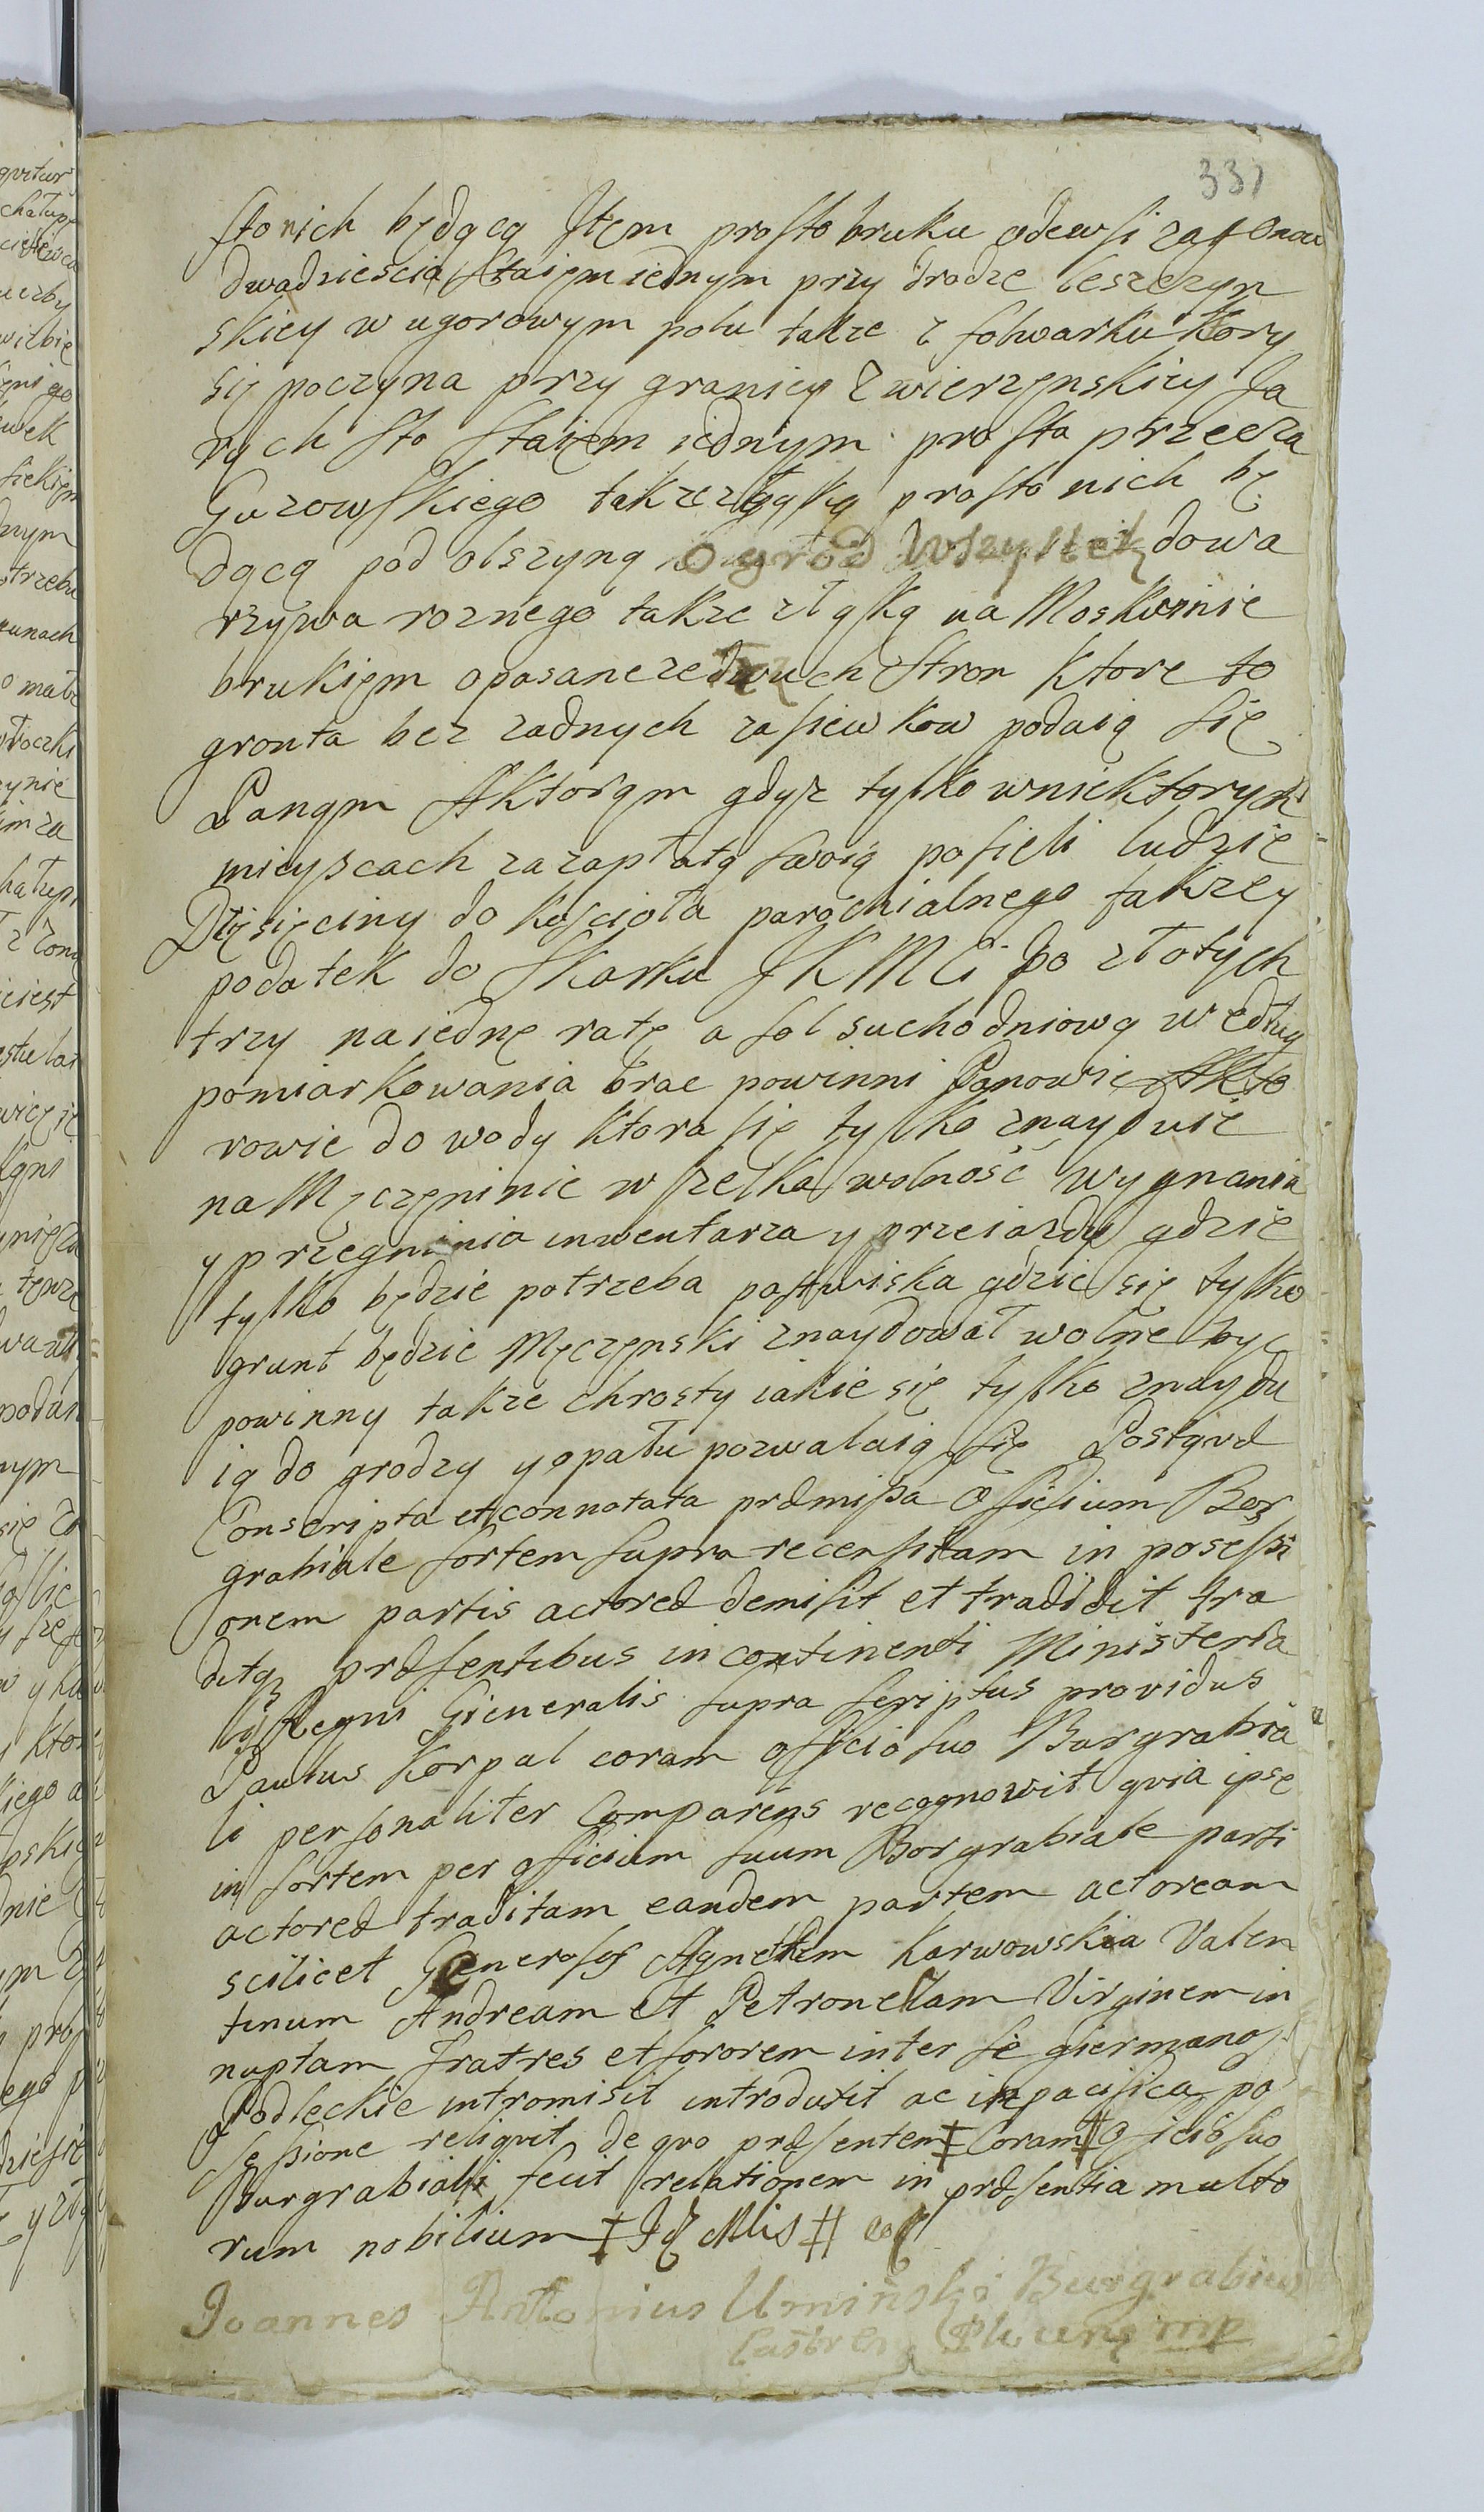 331
sto nich będącą Item prosto bruku odewsi zagonow
dwadziescia staięm iednym przy drodze leszczyn
skiey w ugorowym polu takze z folwarku ktory
się poczyna przy granicy Zwierzenskiey Ja
rych sto staięm iednym prosta przecza
Guzowskiego takze z łąską prosto nich bę
dącą pod olszyną ogrod wszystek dowa
rzywa roznego takze złąską na Moskwinie
brukięm opasane zedwuch stron ktore to
gronta bez zadnych zasiewkow podaią się
Panąm Aktorąm gdyz tylko wniektorych
mieyscach zazapłatą swoią posieli ludzie
Dziesięciny do koscioła parochialnego takzey
podatek do skarku JKMCi po złotych
trzy naiednę ratę a sol suchodniową według
pomiarkowania brac powinni Panowie Akto
rowie do wody ktora się tylko znayduie
na Męczęninie wszelka wolność wygnania
y przegnania inwentarza y przeiazdu gdzie
tylko będzie potrzeba pastwiska gdzie się tylko
grunt będzie Męczęnski znaydował wolne byc
powinny takze chrosty iakie się tylko znaydu
ią do grodzy y opału pozwalaią się Postqvæ
Conscripta et connotata præmissa Officium Bor
grabiale sortem supra recensitam in posessi
onem partis actoreæ demisit et tradidit tra
ditq præsentibus in continenti Ministeria
lis Regni Gieneralis supra scriptus providus
Paulus Korpal coram officio suo Burgrabia
li personaliter Comparens recognowit qvia ipse
in sortem per officium suum Borgrabiale parti
actoreæ traditam eandem partem actoream
scilicet Generosos Agnetem Karwowskia Valen
tinum Andream et Petronellam Virginem in
nuptam fratres et sororem inter se giermanos
Podleckie intromisit introduxit ac in pacifica po
sessione reliqvit de qvo præsentem ‡ Coram ⧧ officio suo
Burgrabiali fecit relationem in præsentia multo
rum nobilium ‡ Idq Mlis ⧧
Joannes Antonius Uminski Burgrabius
Castren mp